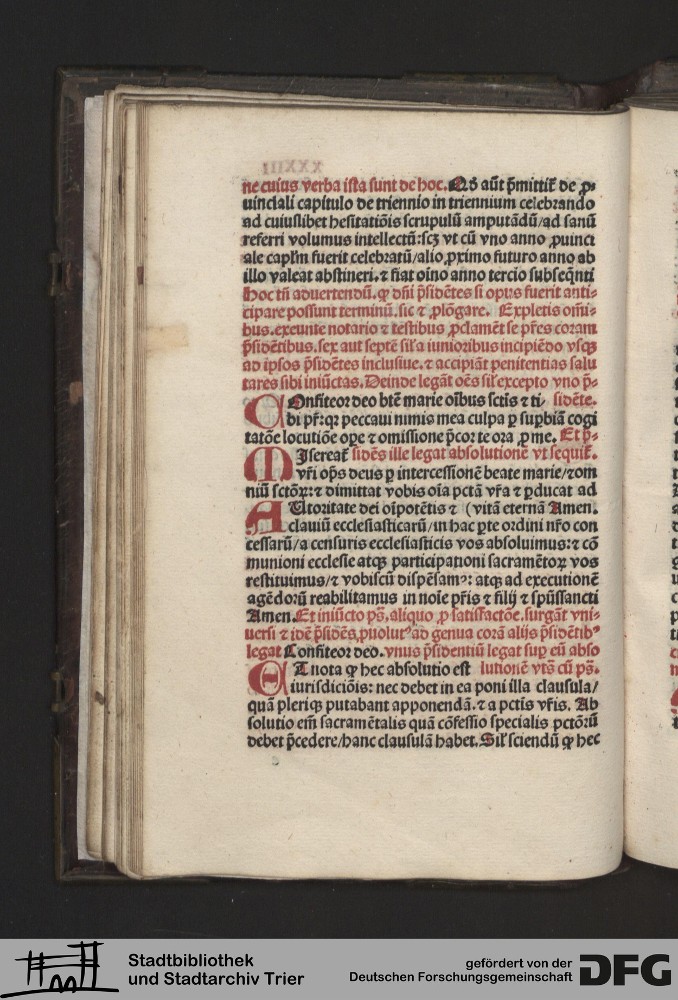 ne cuius verba ista sunt de hoc. Qđ aūt p̄mittiť de ꝓ-
uinciali capitulo de triennio in triennium celebrando
ad cuiuslibet hesitatiōis scrupulū amputādū/ad sanū
referri volumus intellectū:scꝫ vt cū vno anno ꝓuinci
ale capl'm fuerit celebratū/alio ꝓximo futuro anno ab
illo valeat abstineri.⁊ fiat oīno anno tercio subseqn̄ti
Hoc tn̄ aduertendū.ꝙ dn̄i p̄sidētes si opus fuerit anti-
cipare possunt terminū.sic ⁊ ꝓlōgare. Expletis om̄i-
bus.exeunte notario ⁊ testibus ꝓclamēt se pr̄es coram
p̄sidētibus.sex aut septē sil'a iunioribus incipiēdo vsqꝫ
ad ipsos p̄sidētes inclusiue.⁊ accipiāt penitentias salu
tares sibi iniūctas.Deinde legāt oēs sil' excepto vno p̄-
COnfiteor deo btē marie oībus sctīs ⁊ ti- sidēte.
bi pr̄:qr peccaui nimis mea culpa ꝑ suꝑbiā cogi
tatōe locutiōe oꝑe ⁊ omissione p̄cor te ora ꝓ me. Et p̄-
MIsereať sidēs ille legat absolutionē vt sequiť.
vr̄i ops̄ deus ꝑ intercessionē beate marie/⁊om
niū sctōꝝ:⁊ dimittat vobis oīa pctā vr̄a ⁊ ꝑducat ad
AUctoritate dei oīpotētis ⁊ (vitā eternā Amen.
clauiū ecclesiasticarū/in hac ꝑte ordini nr̄o con
cessarū/a censuris ecclesiasticis vos absoluimus:⁊ cō
munioni ecclesie atqꝫ participationi sacramētoꝝ vos
restituimus/⁊ vobiscū dispēsamꝰ: atqꝫ ad executionē
agēdorū reabilitamus in noīe pr̄is ⁊ filij ⁊ spūssancti
Amen.Et iniūcto ps̄.aliquo ꝓ satisfactōe.surgāt vni-
uersi ⁊ idē p̄sidēs ꝓuolutꝰ ad genua corā alijs p̄sidētibꝰ
legat Confiteor deo.vnus p̄sidentiū legat suꝑ eū abso
ET nota ꝙ hec absolutio est lutionē vts̄ cū ps̄.
iurisdiciōis: nec debet in ea poni illa clausula/
quā pleriqꝫ putabant apponendā.⁊ a pctis vr̄is. Ab
solutio em̄ sacramētalis quā cōfessio specialis pctōrū
debet p̄cedere/hanc clausulā habet. Sil' sciendū ꝙ hec
Stadtbibliothek
und Stadtarchiv Trier
gefördert von der
Deutschen Forschungsgemeinschaft
DFG